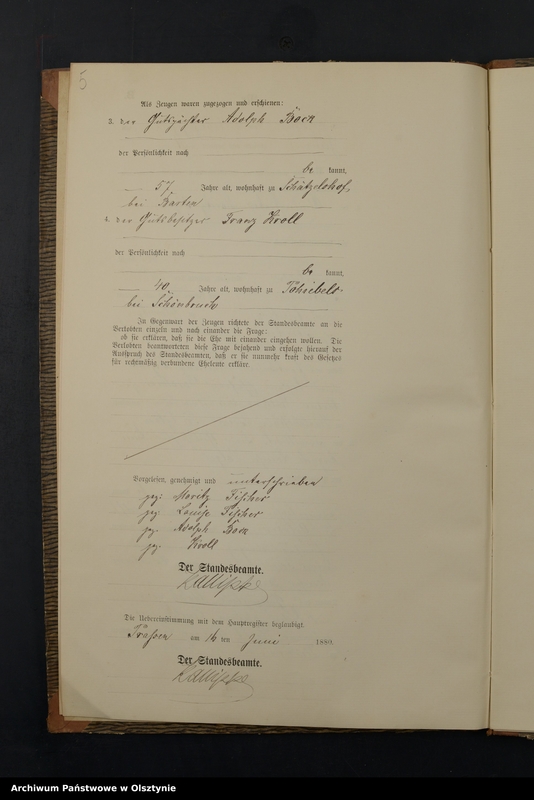 5
Als Zeugen waren zugezogen und erschienen:
3. der Gutspächter Adolph Bock
der Persönlichkeit nach
be kannt,
57 Jahre alt, wohnhaft zu Schätzelshof,
bei Barten
4. der Gutsbesitzer Franz Kroll
der Persönlichkeit nach
be kannt,
40 Jahre alt, wohnhaft zu
bei Schönbruch
In Gegenwart der Zeugen richtete der Standesbeamte an die
Verlobten einzeln und nach einander die Frage:
ob sie erklären, daß sie die Ehe mit einander eingehen wollen. Die
Verlobten beantworteten diese Frage bejahend und erfolgte hierauf der
Ausspruch des Standesbeamten, daß er sie nunmehr kraft des Gesetzes
für rechtmäßig verbundene Eheleute erkläre.
Vorgelesen, genehmigt und unterschrieben
gez: Moritz Fischer
gez: Louise Fischer
gez. Adolph Bock
gez. Kroll
Der Standesbeamte.
Die Uebereinstimmung mit dem Hauptregister beglaubigt.
am 16 ten Juni 1880.
Der Standesbeamte.
Archiwum Państwowe w Olsztynie